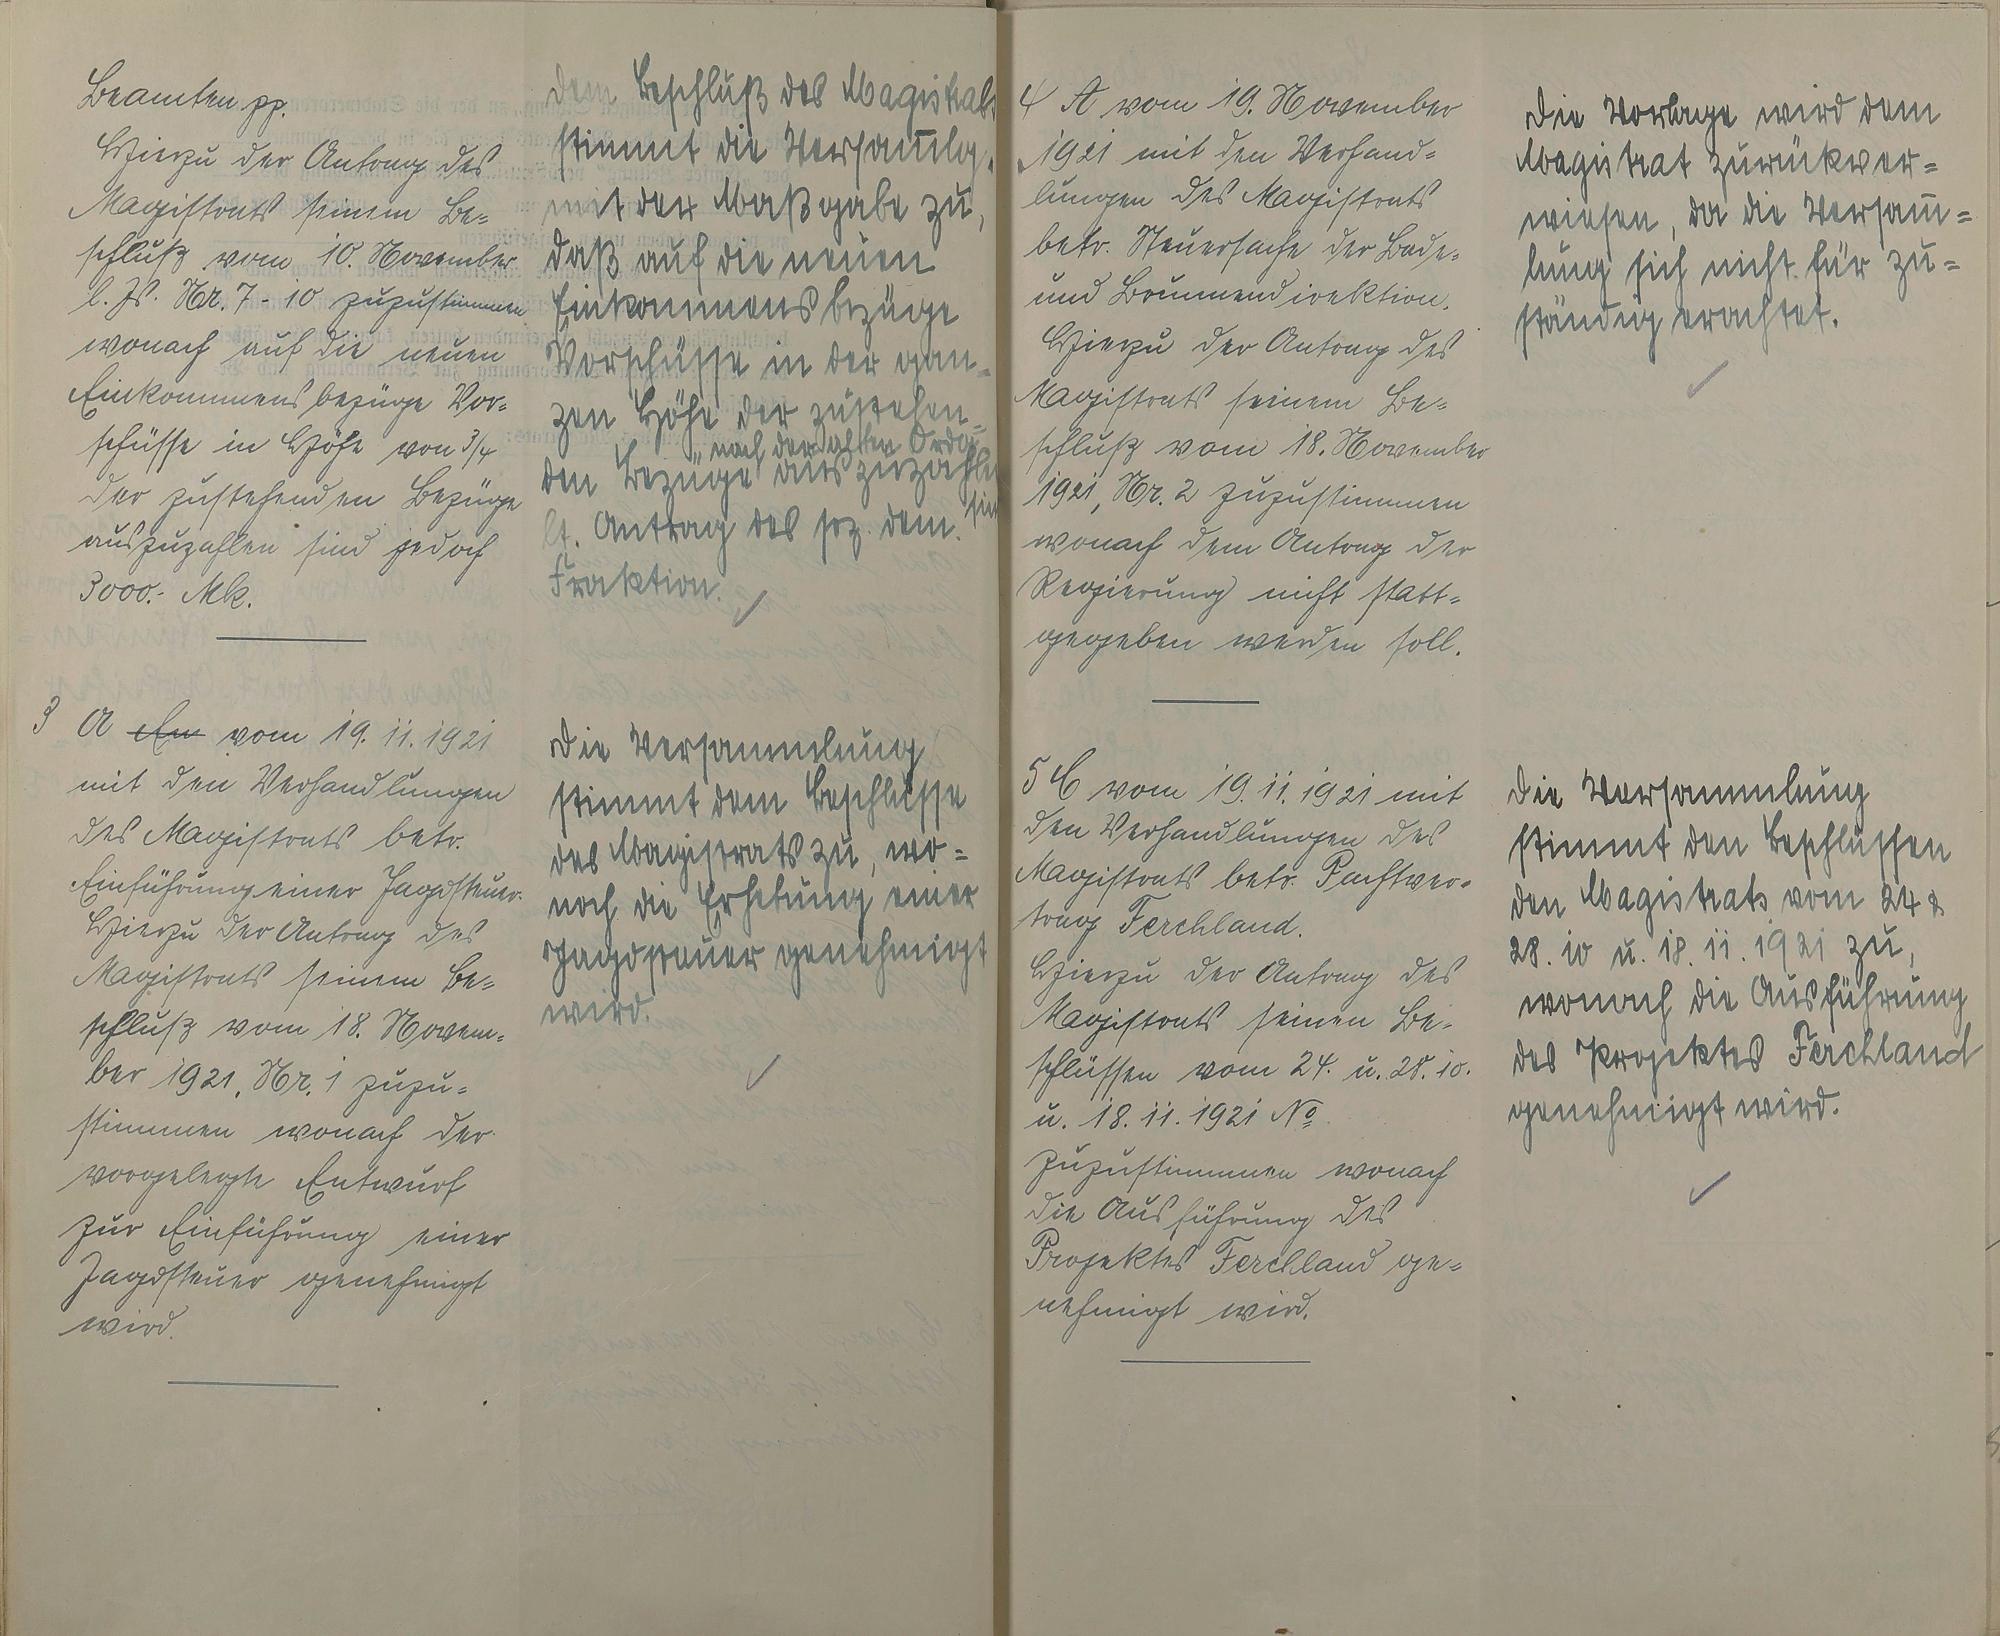 Beamten pp.
Hierzu der Antrag des
Magistrats seinem Be=
schluß vom 10. November
l. Js. Nr. 7-10 zuzustimmen
wonach auf die neuen
Einkommensbezüge Vor=
schüsse in Höhe von 3/4
der zustehenden Bezüge
auszuzahlen sind jedoch
3000.- Mk.
dem Beschluß des Magistrats
stimmt die Versam̅lg.
mit der Maßgabe zu,
daß auf die neuen
Einkommensbezüge
Vorschüsse in der gan=
zen Höhe der zustehen=
nach der alten Ordg.
den Bezüge auszuzahlen
sind
lt. Antrag des soz. dem.
Fraktion.
3 A Em vom 19. 11. 1921
mit den Verhandlungen
des Magistrats betr.
Einführung einer Jagdsteuer.
Hierzu der Antrag des
Magistrats seinem Be=
schluß vom 18. Novem=
ber 1921, Nr. 1 zuzu=
stimmen wonach der
vorgelegte Entwurf
zur Einführung einer
Jagdsteuer genehmigt
wird.
Die Versammlung
stimmt dem Beschlusse
des Magistrats zu, wo=
nach die Erhebung einer
Jagdsteuer genehmigt
wird.
4 A vom 19. November
1921 mit den Verhand=
lungen des Magistrats
betr. Steuersache der Bade-
und Brunnendirektion.
Hierzu der Antrag des
Magistrats seinem Be=
schluß vom 18. November
1921, Nr. 2 zuzustimmen
wonach dem Antrag der
Regierung nicht statt=
gegeben werden soll.
Die Vorlage wird dem
Magistrat zurückver=
wiesen, da die Versam̅=
lung sich nicht für zu=
ständig erachtet.
5 C vom 19. 11. 1921 mit
den Verhandlungen des
Magistrats betr. Pachtver=
trag Ferchland.
Hierzu der Antrag des
Magistrats seinen Be=
schlüssen vom 24. u. 28. 10.
u. 18. 11. 1921 No
zuzustimmen wonach
die Ausführung des
Projektes Ferchland ge=
nehmigt wird.
Die Versammlung
stimmt den Beschlüssen
den Magistrats vom 24 &
28. 10 u. 18. 11. 1921 zu,
wonach die Ausführung
des Projektes Ferchland
genehmigt wird.